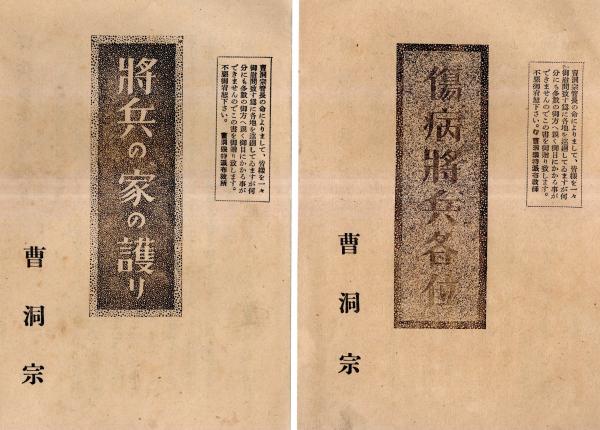 曹洞宗管長の命によりまして、皆様を一々
御慰問致す爲に各地を巡錫してゐますが何
分にも多数の御方へ親く御目にかかる事が
できませんのでこの書を御贈り致します。
不悪御宥恕下さい。 曹洞宗特派布教師
將兵の家の護り
曹洞宗
曹洞宗管長の命によりまして、皆様を一々
御慰問致す爲に各地を巡錫してゐますが何
分にも多数の御方へ親く御目にかかる事が
できませんのでこの書を御贈り致します。
不悪御宥恕下さい。 曹洞宗特派布教師
傷病將兵各位
曹洞宗